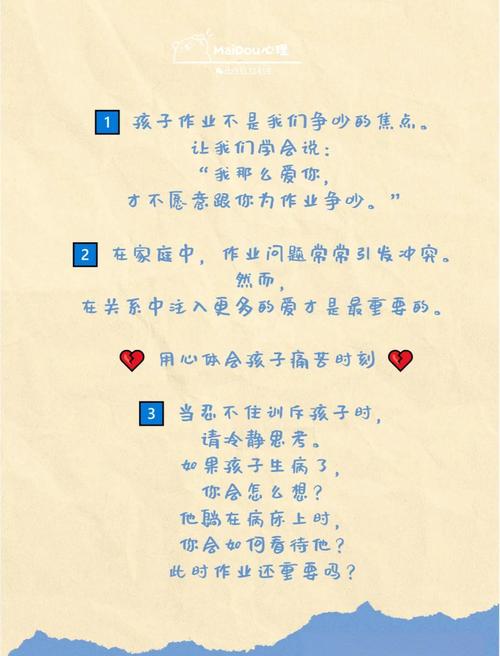 MaiDou心理
1 孩子作业不是我们争吵的焦点。
让我们学会说：
“我那么爱你，
才不愿意跟你为作业争吵。”
2 在家庭中，作业问题常常引发冲突。
然而，
在关系中注入更多的爱才是最重要的。
用心体会孩子痛苦时刻
3 当忍不住训斥孩子时，
请冷静思考。
如果孩子生病了，
你会怎么想？
他躺在病床上时，
你会如何看待他？
此时作业还重要吗？